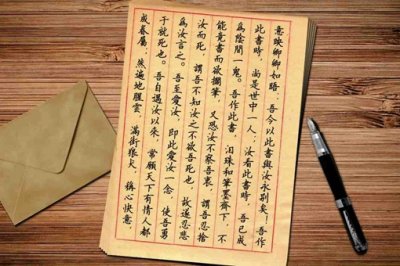 意映卿卿如晤，吾今以此書與汝永別矣！吾作
此書時，尚是世中一人；汝看此書時，吾已成
為陰間一鬼。吾作此書，泪珠和筆墨齊下，不
能竟書而欲擱筆，又恐汝不察吾衷，謂吾忍捨
汝而死，謂吾不知汝之不欲吾死也，故遂忍悲
為汝言之。吾至愛汝，即此愛汝一念，使吾勇
于就死也。吾自遇汝以來，常願天下有情人都
成眷屬；然遍地腥雲，滿街狼犬，稱心快意，